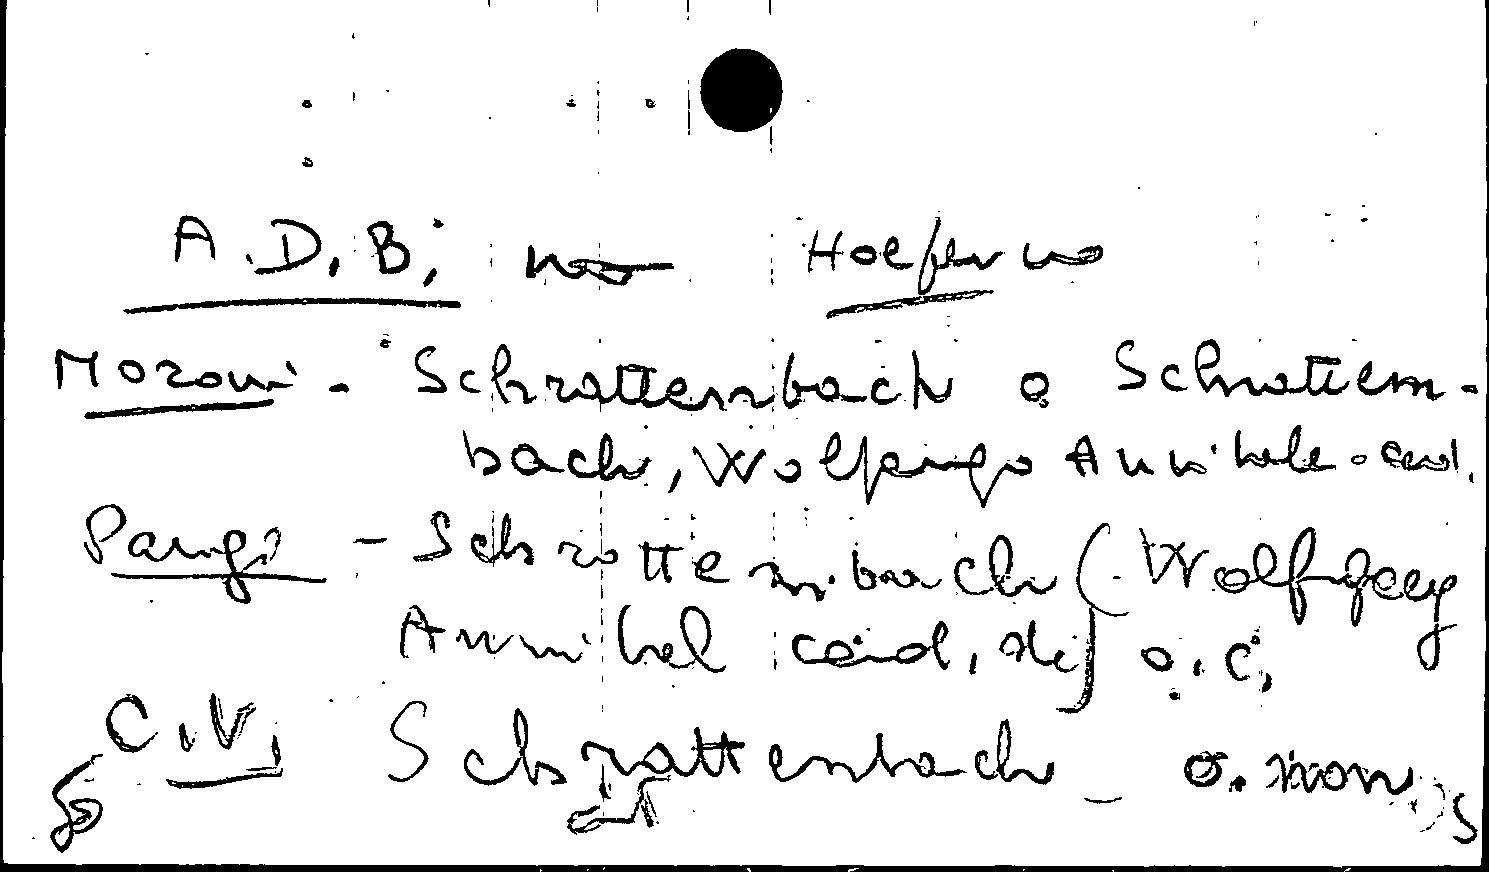 A.D.B; no Hoefer no
Moroni - Schrattenbach o Schrattem-
bach, Wolfango Annibale - card.
Parigi - Schrottembach (Wolfgang
Annibal card. de) o. c.
C.V. Schrattenbach - o. non